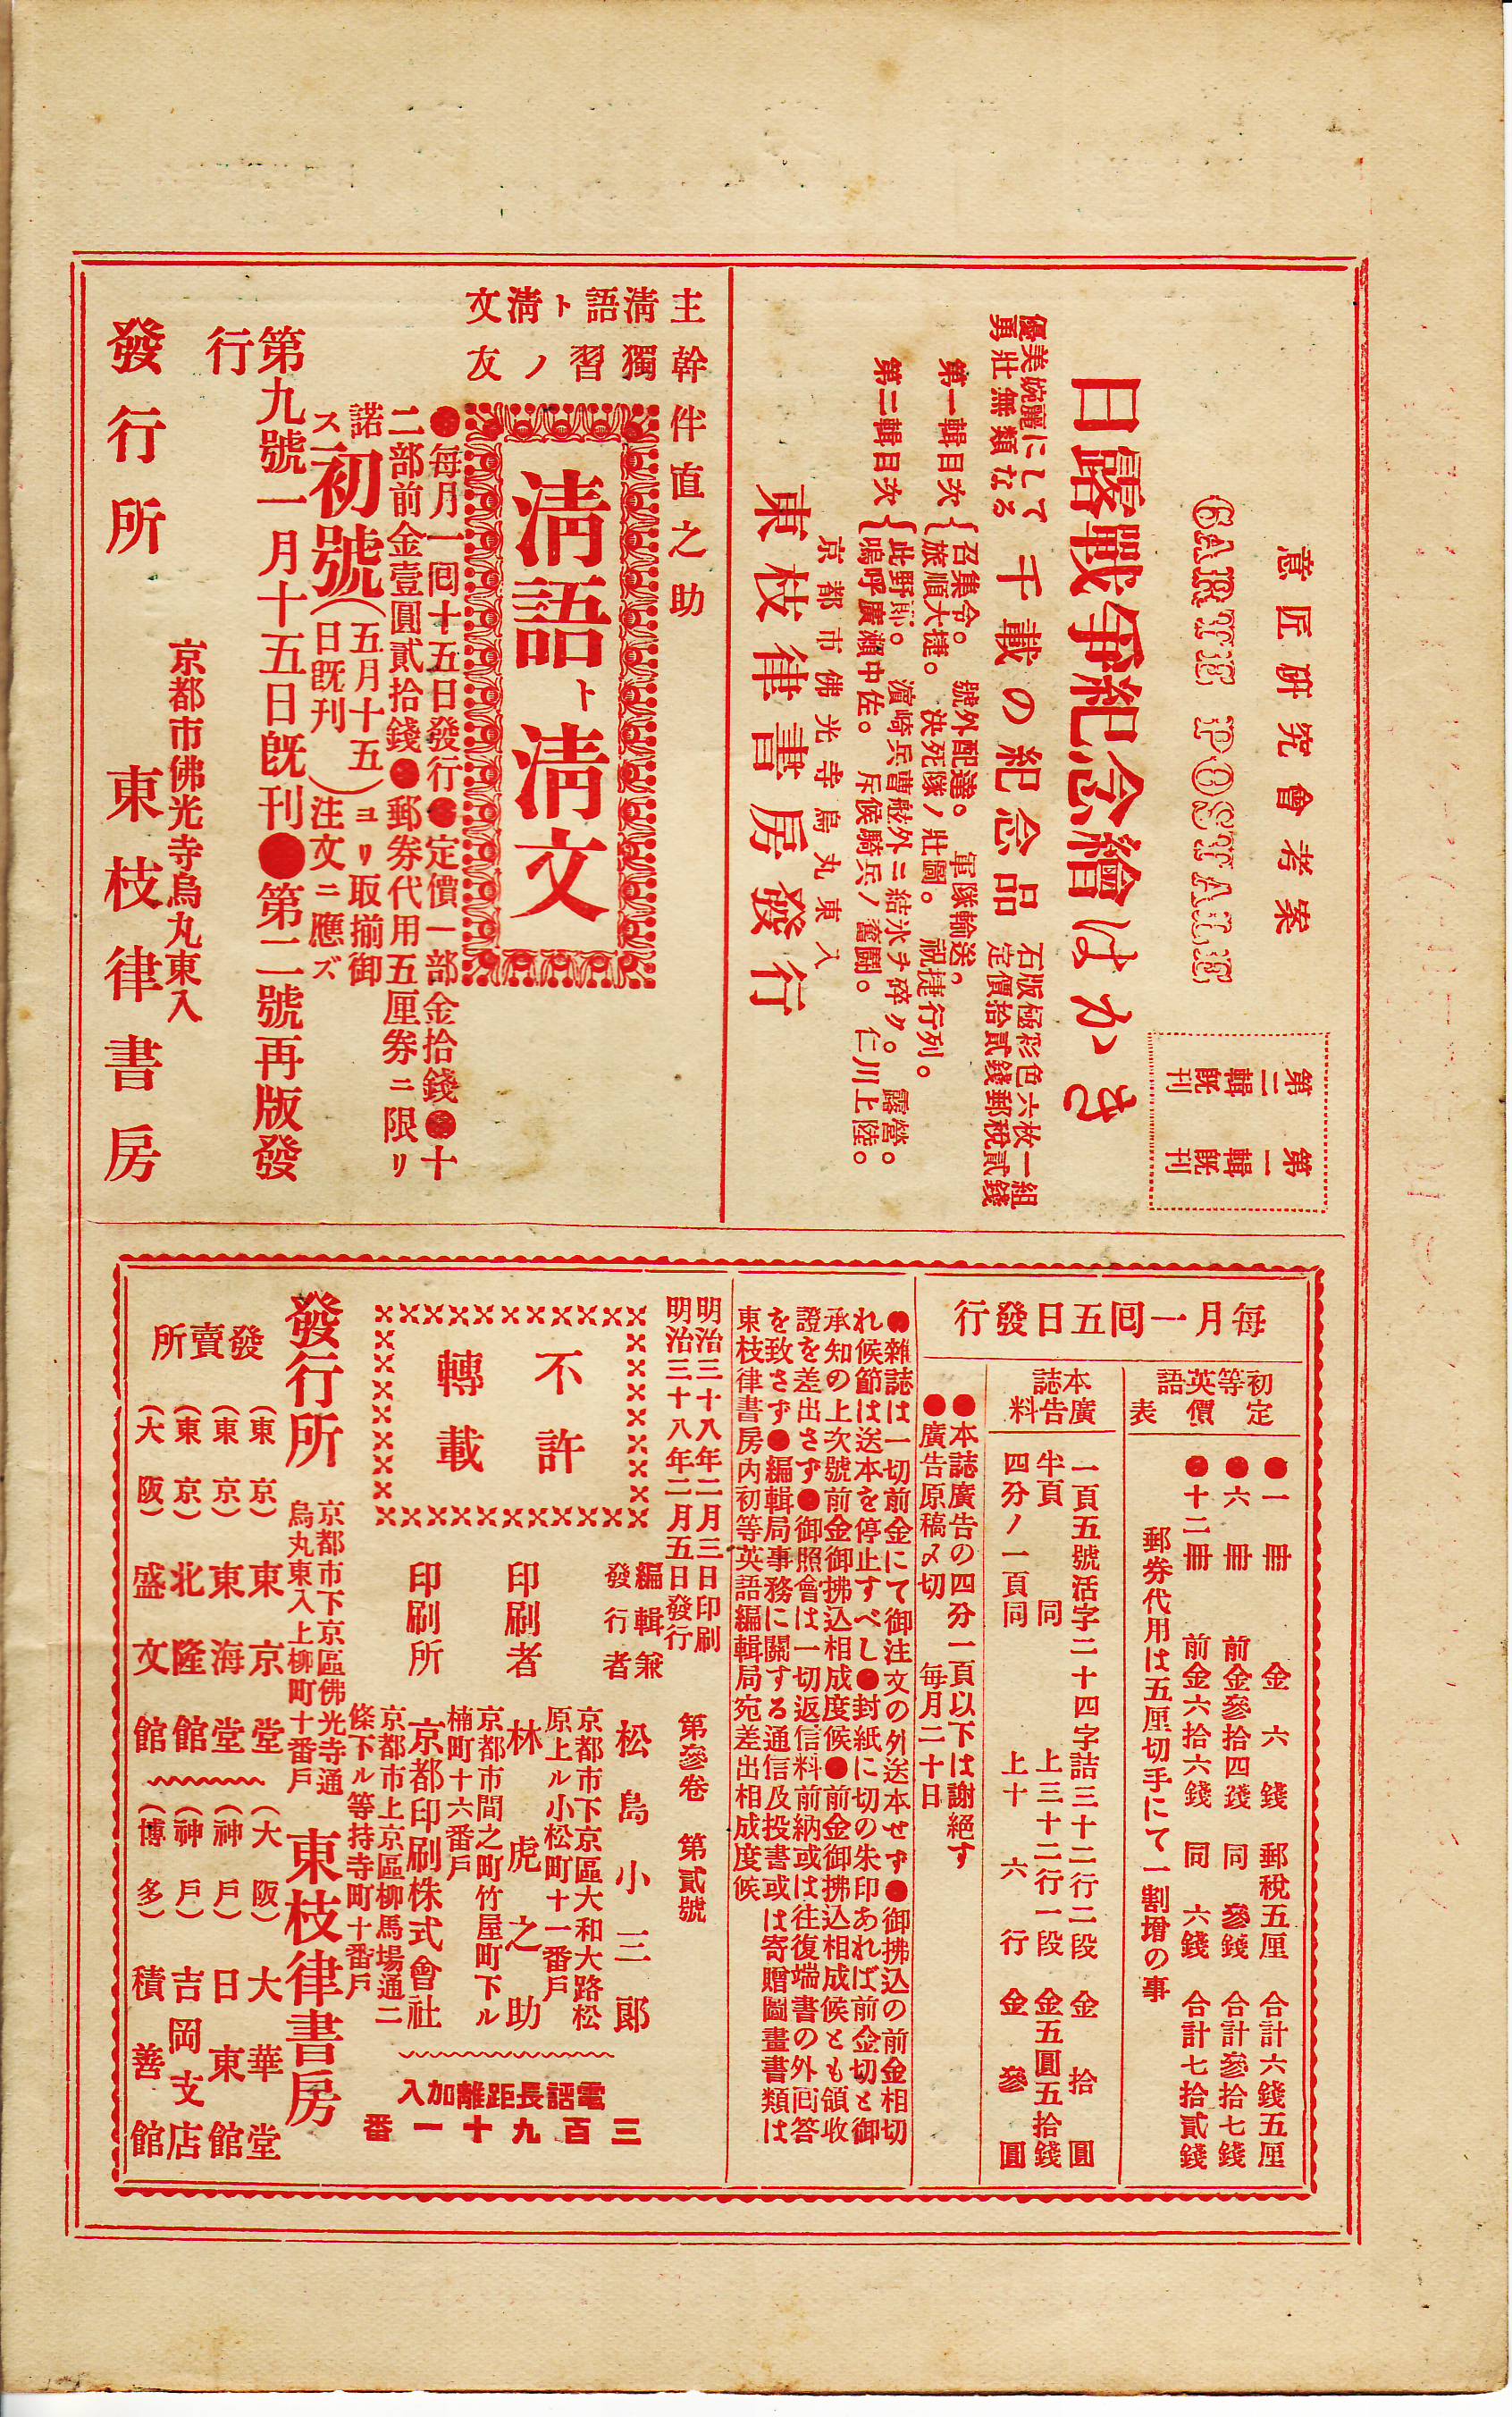 意匠研究會考案
CARTE POSTALE
第二輯既刊
第一輯既刊
日露戰爭紀念繪はかき
優美婉麗にして
勇壯無類なる
千載の紀念品
石版極彩色六枚一組
定價拾貳錢郵稅貳錢
第一輯目次
召集令。號外配達。軍隊輸送。
旅順大捷。決死隊ノ壯圖。祝捷行列。
第二輯目次
此野郎。濵崎兵曹舷外ニ結氷ヲ碎ク。露營。
嗚呼廣瀨中佐。斥候騎兵ノ奮鬪。仁川上陸。
京都市佛光寺烏丸東入
東枝律書房發行
主幹 伴直之助
淸獨
語習
ト ノ
淸友
文
淸語ト淸文
●每月一回十五日發行●定價一部金拾錢●十
二部前金壹圓貳拾錢●郵券代用五厘券ニ限リ
諾ス初號(五月十五日既刊)ヨリ取揃御注文ニ應ズ
第九號一月十五日既刊●第二號再版發
行
京都市佛光寺烏丸東入
發行所 東枝律書房
每月一回五日發行
初等英語定價表
●一冊 金六錢 郵稅五厘 合計六錢五厘
●六冊 前金參拾四錢 同 參錢 合計參拾七錢
●十二冊 前金六拾六錢 同 六錢 合計七拾貳錢
郵券代用は五厘切手にて一割增の事
本誌廣告料
一頁五號活字二十四字詰三十二行二段 金拾圓
半頁 同 上三十二行一段 金五圓五拾錢
四分ノ一頁同 上十六行 金參圓
●本誌廣告の四分一頁以下は謝絕す
●廣告原稿〆切 每月二十日
●雜誌は一切前金にて御注文の外送本せず●御拂込の前金相切
れ候節は送本を停止すべし●封紙に切の朱印あれば前金切と御
承知の上次號前金御拂込相成度候●前金御拂込相成候とも領收
證を差出さず●御照會は一切返信料前納或は往復端書の外回答
を致さず●編輯局事務に關する通信及投書或は寄贈圖畫書類は
東枝律書房内初等英語編輯局宛差出相成度候
明治三十八年二月三日印刷
明治三十八年二月五日發行
第參卷 第貳號
不許
轉載
編輯兼
發行者
松島小三郎
京都市下京區大和大路松
原上ル小松町十一番戶
印刷者
林虎之助
京都市間之町竹屋町下ル
楠町十六番戶
印刷所
京都印刷株式會社
京都市上京區柳馬場通二
條下ル等持寺町十番戶
電話長距離加入
三百九十一番
發行所
京都市下京區佛光寺通
烏丸東入上柳町十番戶
東枝律書房
發賣所
(東京) 東京堂
(大阪) 大華堂
(東京) 東海堂
(神戶) 日東館
(東京) 北隆館
(神戶) 吉岡支店
(大阪) 盛文館
(博多) 積善館